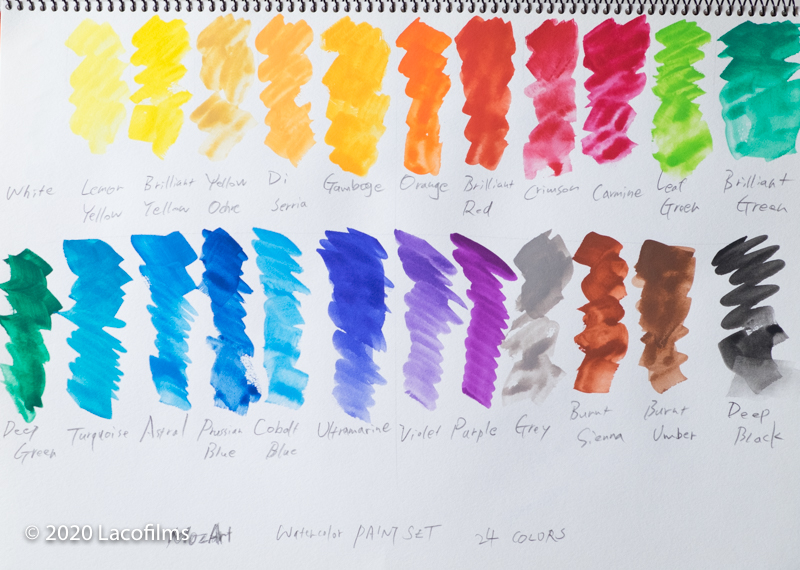 White
Lemon
Yellow
Brilliant
Yellow
Yellow
Ochre
Di
Serria
Gamboge
Orange
Brilliant
Red
Crimson
Carmine
Leaf
Green
Brilliant
Green
Deep
Green
Turquoise
Astral
Prussian
Blue
Cobalt
Blue
Ultramarine
Violet
Purple
Grey
Burnt
Sienna
Burnt
Umber
Deep
Black
© 2020 Lacofilms
MozArt Watercolor PAINT SET 24 COLORS